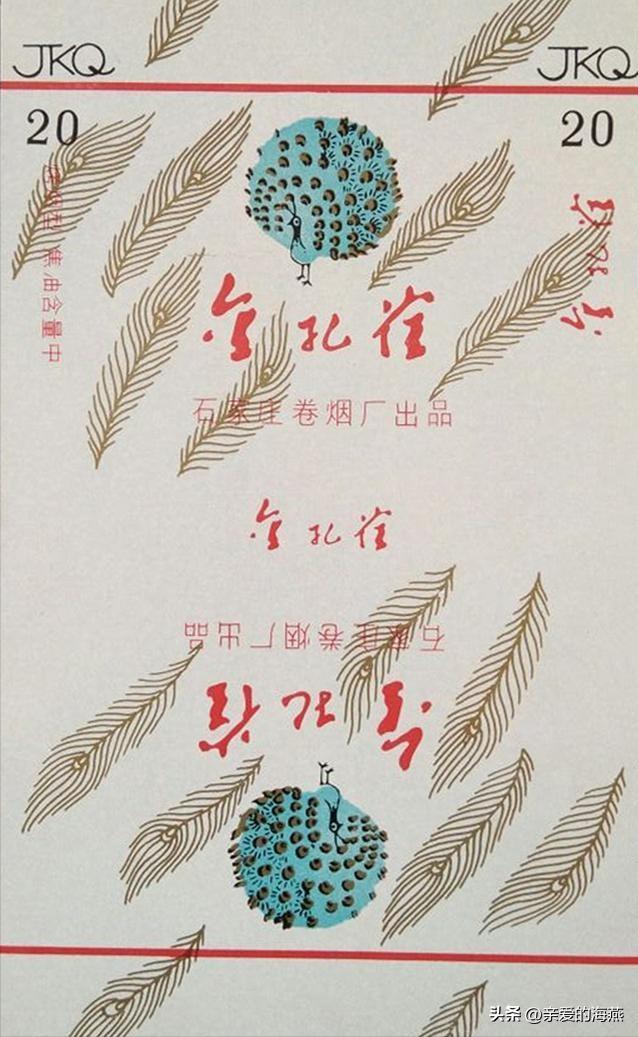 JKQ
JKQ
20
20
型 焦油含量中
金孔雀
金孔雀
石家庄卷烟厂出品
金孔雀
石家庄卷烟厂出品
金孔雀
头条 @亲爱的海燕